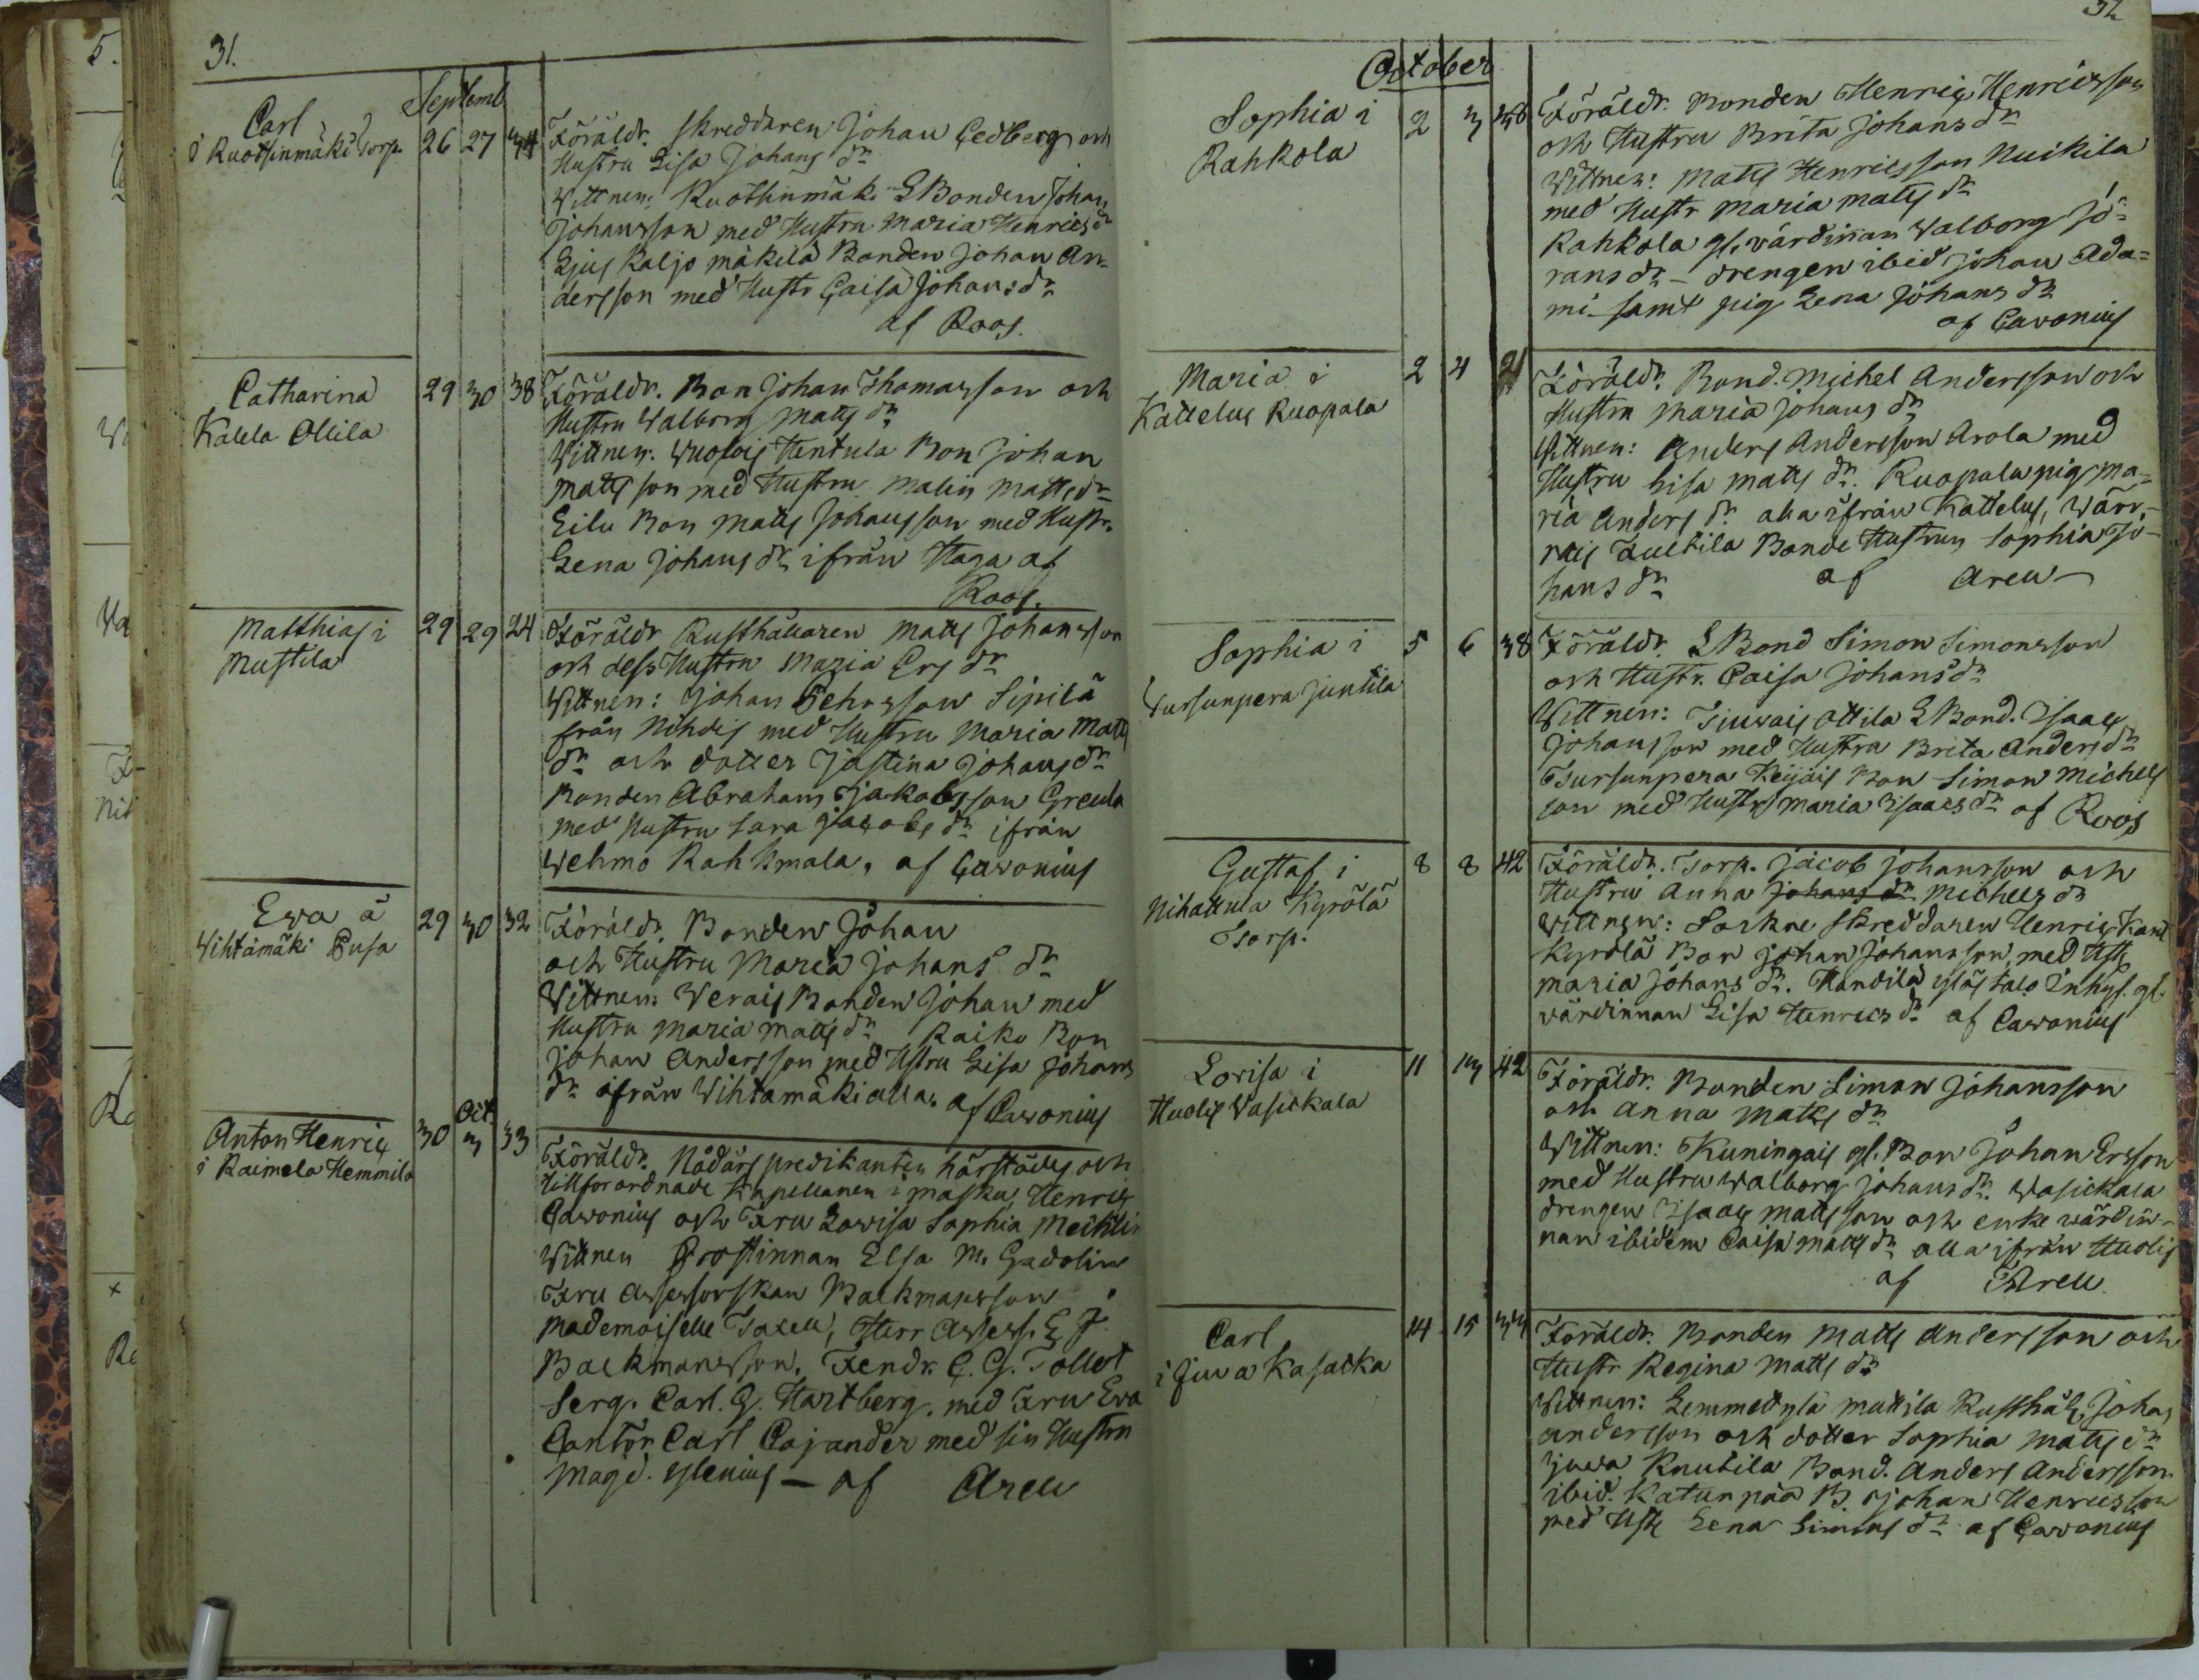 31.
Septemb
Carl
i Kuotsinmäki Torp. 26 27 34
Föräldr. Skreddaren Johan Cedberg och
Hustru Lisa Johans dr
Vittnen: Kuotsinmäki S Bonden Johan
Johansson med Hustru Maria Henrics dr
Kaljo mäkilä Bonden Johan An-
dersson med Hustr Caisa Johans dr
af Roos.
Catharina
Kalela Ollila 29 30 38
Föräldr. Bon Johan Thomasson och
Hustru Walborg Matts dr
Vittnen: Wuolois Hentula Bon Johan
Mattsson med Hustru Malin Matts dr
Eilu Bon Matts Johansson med Hustr.
Lena Johans dr ifrån Haga af
Roos.
Matthias i
Mustila 29 29 24
Föräldr Rusthållaren Matts Johansson
och dess Hustru Maria Ers dr
Vittnen: Johan Sipilä
från Nihdis med Hustru Maria Matts
dr och dotter Justina Johans dr
Bonden Abraham Jakobsson Greula
med Hustru Sara Jacobs dr ifrån
Wehmo Rahkmala. af Cavonius
Ewa å
Wihtämäki Pusa 29 30 32
Föräldr. Bonden Johan
och Hustru Maria Johans dr
Vittnen: Werais Bonden Johan med
Hustru Maria Matts dr Raiko Bon
Johan Andersson med Hstru Lisa Johans
dr ifrån Wihtamäki alla. af Cavonius
Anton Henric
i Raimela Hemmila 30 Oct. 3 33
Föräldr. Nådårspredikanten härstädes och
tillförordnade Kapellanen i Masku, Henric
Cavonius och Fru Lovisa Sophia Mechlin
Vittnen Prostinnan Elsa M. Gadolin
Fru Assessorskan Backmansson
Mademoiselle Taxell, Herr Assess. E J.
Backmansson. Fendr. C. G. Tollet
Serg. Carl. G. Hartberg. med Fru Eva
Cantor Carl Cajander med sin Hustru
Magd. Ylenius — af Areu
32
October
Sophia i
Rahkola 2 3 38
Föräldr. Bonden Henric Henricsson
och Hustru Brita Johans dr
Vittnen: Matts Henricsson Nuikila
med Hustr Maria Matts dr
Rahkola gl. värdinnan Walborg Jö-
rans dr — drengen ibid Johan Ada-
mi — samt pig Lena Johans dr
af Cavonius
Maria i
Kattelus Ruopala 2 4 21
Föräldr. Bond. Michel Andersson och
Hustru Maria Johans dr
Vittnen: Anders Andersson Arola med
Hustru Lisa Matts dr. Ruopala pig Ma-
ria Anders dr alla ifrån Kattelus, Wärr-
rais Kultila Bonde Hustrun Sophia Jo-
hans dr af Areu —
Sophia i
Wursunpera Juntila 5 6 38
Föräldr. S Bond Simon Simonsson
och Hustr. Caisa Johans dr
Vittnen: Ottila S Bond. Isaac
Johansson med Hustru Brita Anders dr
Tsursunpera Keijais Bon Simon Michels
son med Hustr Maria Isaacs dr af Roos
Gustaf i
Nihattula Kyrölä
Torp. 8 8 42
Föräldr. Torp. Jacob Johansson och
Hustru Anna Johans dr Michels dr
Vittnen: Sockne Skreddaren Henric
Kyrölä Bon Johan Johansson, med Hst
Maria Johans dr. Handila ylös talo Inhys. gl.
värdinnan Lisa Henrics dr af Cavonius
Lovisa i
Huolis Vasickala 11 13 42
Föräldr. Bonden Simon Johansson
och Anna Matts dr
Vittnen: Kuningais gl. Bon Johan Ersson
med Hustru Walborg Johans dr. Vasickala
drengen Isaac Mattsson och enke värdin-
nan ibidem Caisa Matts dr alla ifrån Huolis
af Areu.
Carl
i Juva Kasacka 14 15 34
Föräldr. Bonden Matts Andersson och
Hustr Regina Matts dr
Vittnen: Lemmedylä Mattila Rusthål. Johan
Andersson och dotter Sophia Matts dr
Juva Knutila Bond. Anders Andersson.
ibid. Katunpää B. Johan Henricsson
med Hst Lena Simons dr af Cavonius